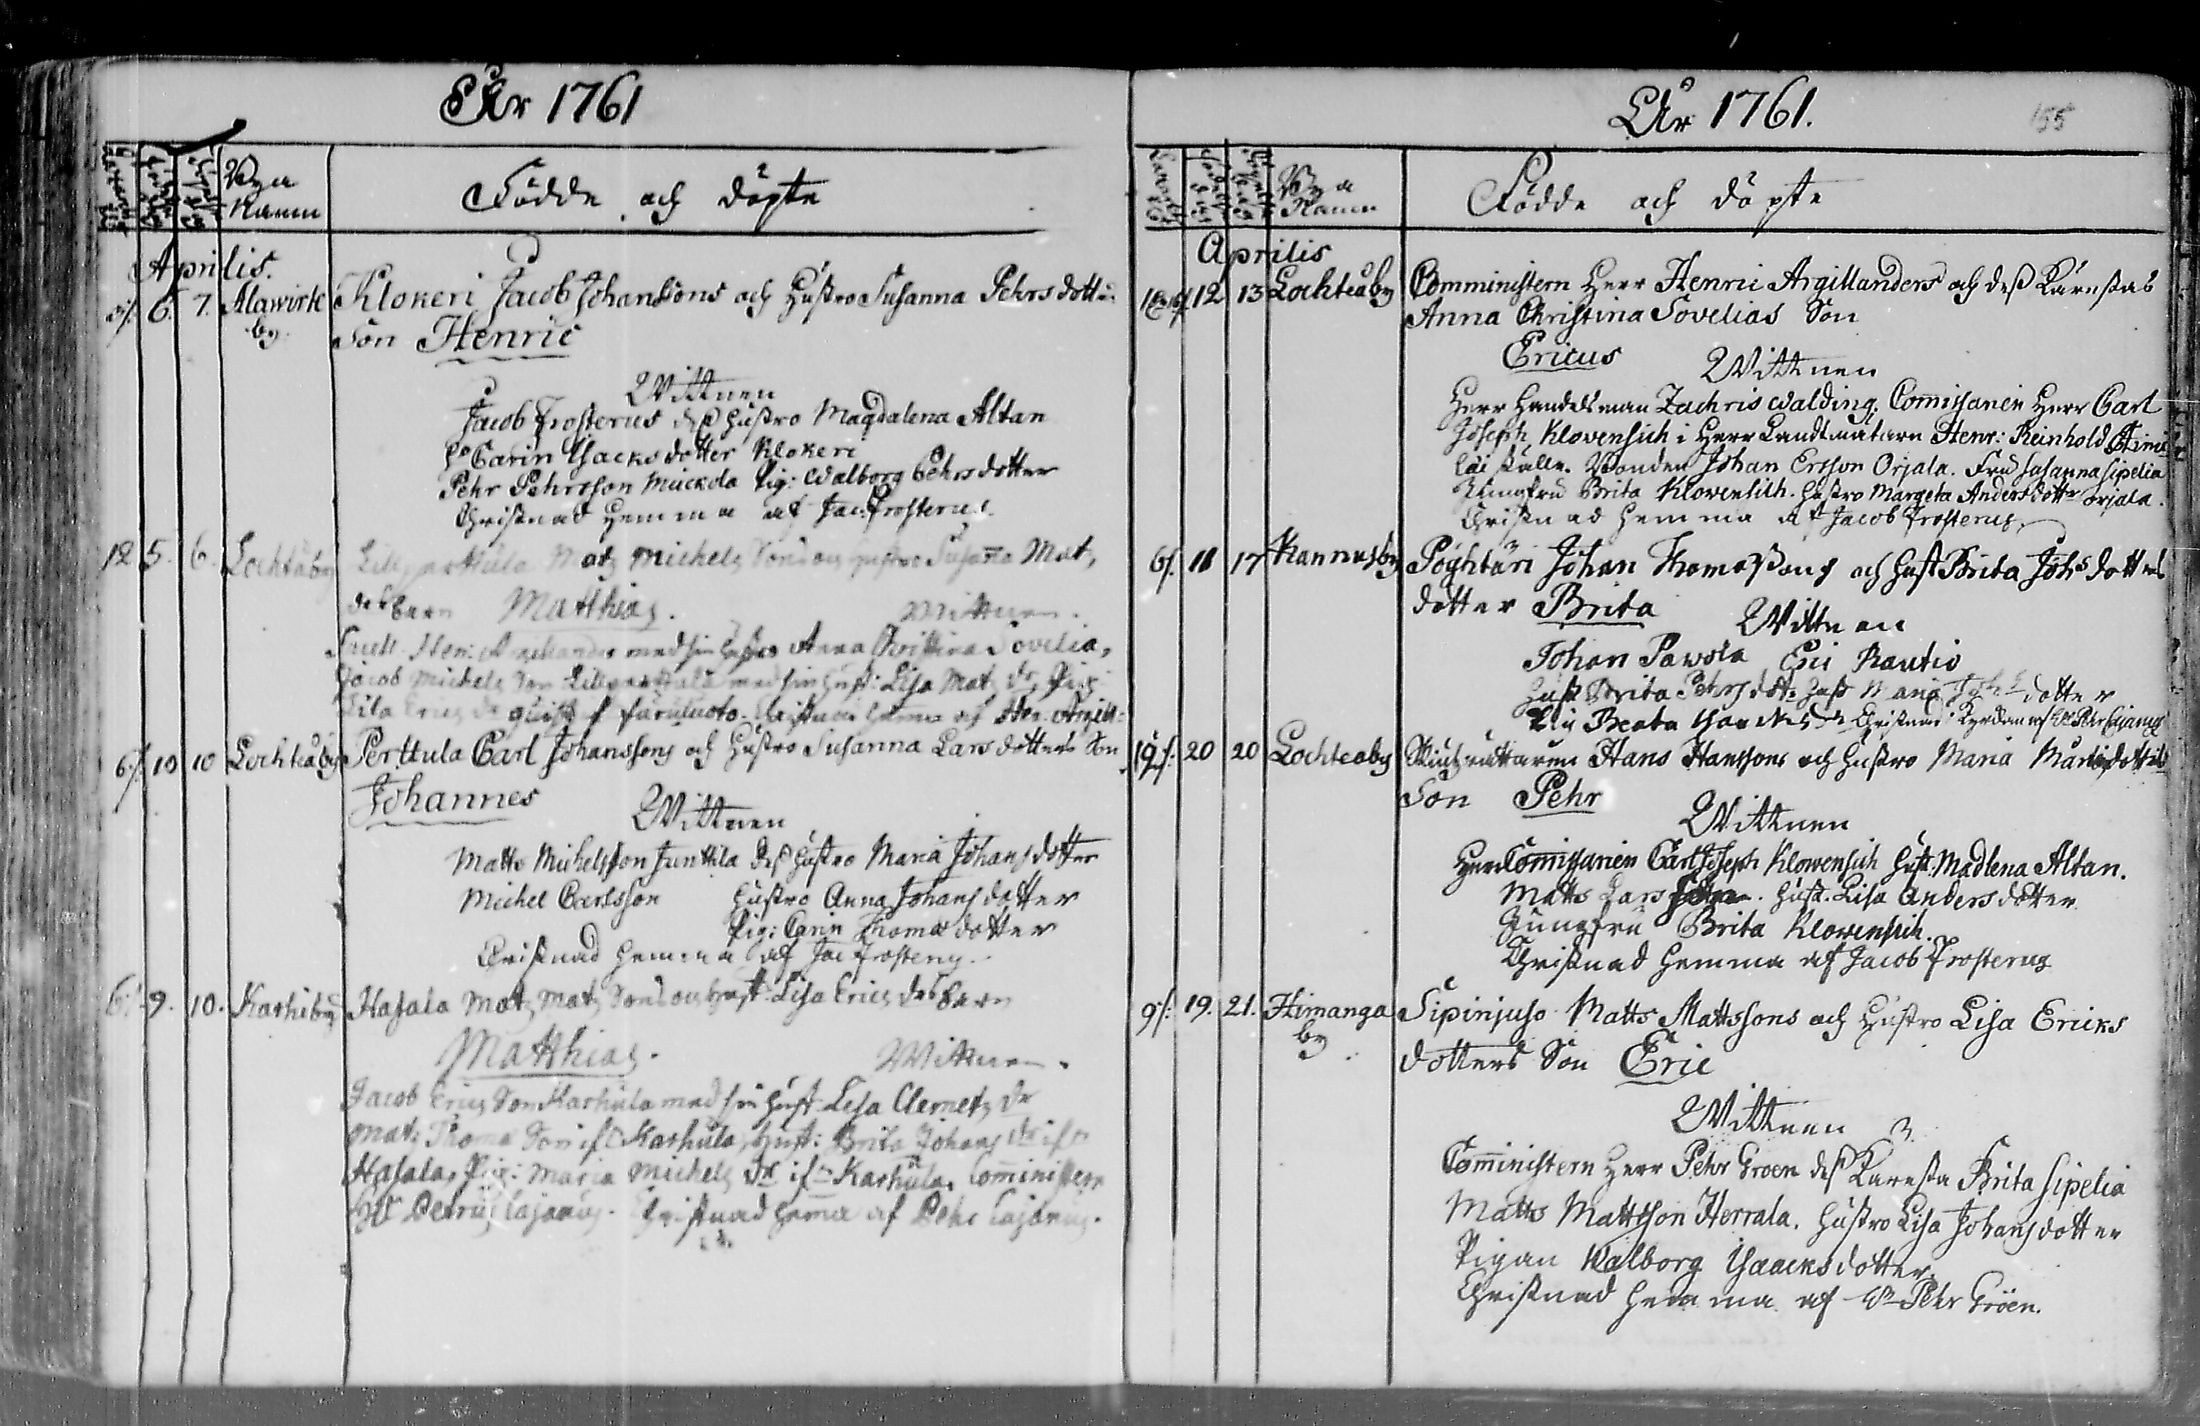 År 1761
Bya Namn
Födde och döpte
Aprilis.
6. 7. Alawirk by.
Klokeri Jacob Johanssons och hustro Susanna Pehrsdotters
Son Henric
Wittnen
Jacob Frosterus dess hustro Magdalena Altan
Carin Isacksdotter Klokeri
Pehr Pehrsson Muckola Pig: Walborg Pehrsdotter
Christnad hemma af Jac: Frosterus.
12 5. 6. Lochteåby
Mats Michels Sons och hustro Susanna Mats
drs barn Matthias. Wittnen.
Hen: Argillander med sin hustro Anna Christina Sovelia,
Jacob Michels Son med sin hust: Lisa Mats dr, Pig:
Christnad hema af Hen: Argill:
6/. 10 10 Lochteåby
Perttula Carl Johanssons och Hustro Susanna Larsdotters Son
Johannes
Wittnen
Matts Michelsson Junttila dess hustro Maria Johansdotter
Michel Carlsson hustro Anna Johansdotter
Pig: Carin Thomædotter
Christnad hemma af Jac Frosterus.
6: 9. 10. Karhiby
Hasala Mats Mats Sons och hust: Lisa Erics drs barn
Matthias. Wittnen.
Jacob Erics Son Karhula med sin hust Lisa Clemets dr
Mats Thomæ Son if: Karhula, hust: Brita Johans dr ifn
Hasala, Pig: Maria Michels dr ifn Karhula, Comministern
Hr Petrus Cajanus. Christnad hema af Pehr Cajanus.
År 1761.
155
Bya Namn
Födde och döpte
Aprilis
12 13 Lochteåby
Comministern Herr Henric Argillanders och dess Kärestas
Anna Christina Sovelias Son
Ericus Wittnen
Herr Handelsman Zachris Walding. Commissarien Herr Carl
Joseph Klovensich i Herr Landtmätaren Henr: Reinhold
ställe. Bonden Johan Ersson Orjala. Fru Susanna Sipelia
Jungfru Brita Klovensich. hustro Margeta Andersdotter Orjala.
Christnad hemma af Jacob Frosterus
6/. 11 17 Kannusby
Pöyhtäri Johan Thomæssons och Hust Brita Johs dotters
dotter Brita Wittnen
Johan Pawola Eric Rautio
Hust Brita Pehrsdotr Hust Maria Johs dotter
Beata
19/: 20 20 Lochteaby
Hans Hanssons och hustro Maria Mårtsdotters
Son Pehr
Wittnen
Herr Commissarien Carl Joseph Klowensich Hust. Madlena Altan.
Matts Lars. Hust. Lisa Andersdotter
Jungfru Brita Klowensich.
Christnad hemma af Jacob Frosterus
9/: 19. 21. Himanga by
Sipinjuso Matts Mattssons och Hustro Lisa Ericks
dotters Son Eric
Wittnen
Comministern Herr Pehr Groen dess Käresta Brita Sipelia
Matts Mattsson Herrala. hustro Lisa Johansdotter
Pigan Walborg Isaacksdotter.
Christnad hemma af Hr Pehr Gröen.